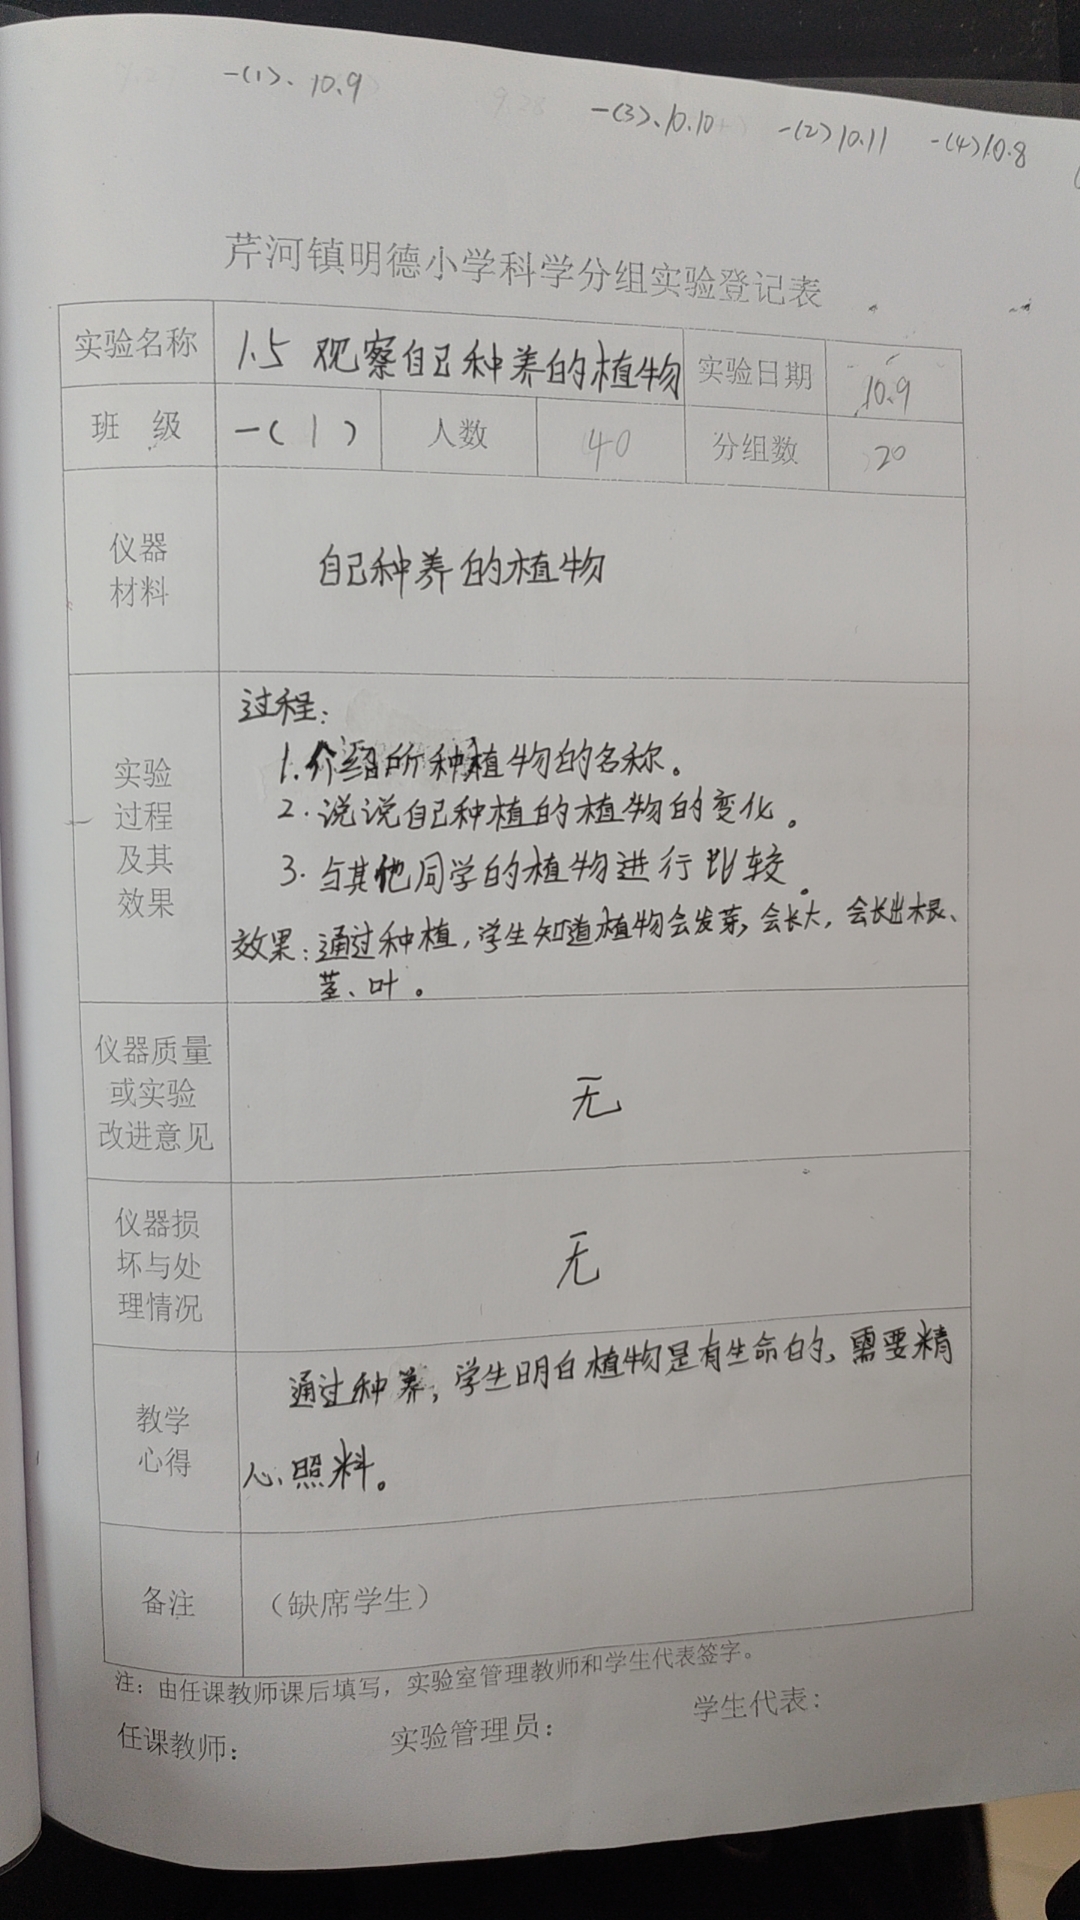 一(1)、10.9
一(3)、10.10
一(2)10.11
一(4)10.8
芹河镇明德小学科学分组实验登记表
实验名称
1.5 观察自己种养的植物
实验日期
10.9
班 级
一(1)
人数
40
分组数
20
仪器
材料
自己种养的植物
实验
过程
及其
效果
过程:
1.介绍所种植物的名称。
2.说说自己种植的植物的变化。
3.与其他同学的植物进行比较。
效果:通过种植,学生知道植物会发芽,会长大,会长出根、
茎、叶。
仪器质量
或实验
改进意见
无
仪器损
坏与处
理情况
无
教学
心得
通过种养,学生明白植物是有生命的,需要精
心照料。
备注
(缺席学生)
注:由任课教师课后填写,实验室管理教师和学生代表签字。
任课教师:
实验管理员:
学生代表: